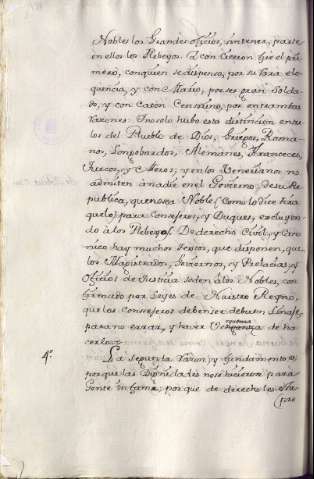 Nobles los Grandes oficios, sin tener, parte
en ellos los Plebeyos. Y con Ciceron fue el pri
mero, con quien se dispenso, por su rara elo
quencia, y con Mario, por ser gran Solda
do, y con Caton Censorino, por entrambas
razones. No solo hubo esta distincion entre
los del Pueblo de Dios, Griegos, Roma
nos, Longobardos, Alemanes, Franceces,
Turcos, y Moros; y en los Benecianos no
admiten à nadie en el Govierno, de su Re
publica, que no sea Noble (como lo dice
) para Consejeros, y Duques, excluyen
do à los Plebeyos. De derecho Civil, y Cano
nico hay muchos textos, que disponen, que
los Magistrados, Goviernos, y Prelacias, y
Oficios de Justicia se den à los Nobles, con
firmado por Leyes de Nuestro Reyno,
que los Consejeros deben ser de buen Linaje,
para no errar, y haver verguenza de ha
cerlo.
4ª. La segunda razon, y fundamento es
porque las Dignidades no se hicieron para
Gente infame; porque de derecho les esta
pro